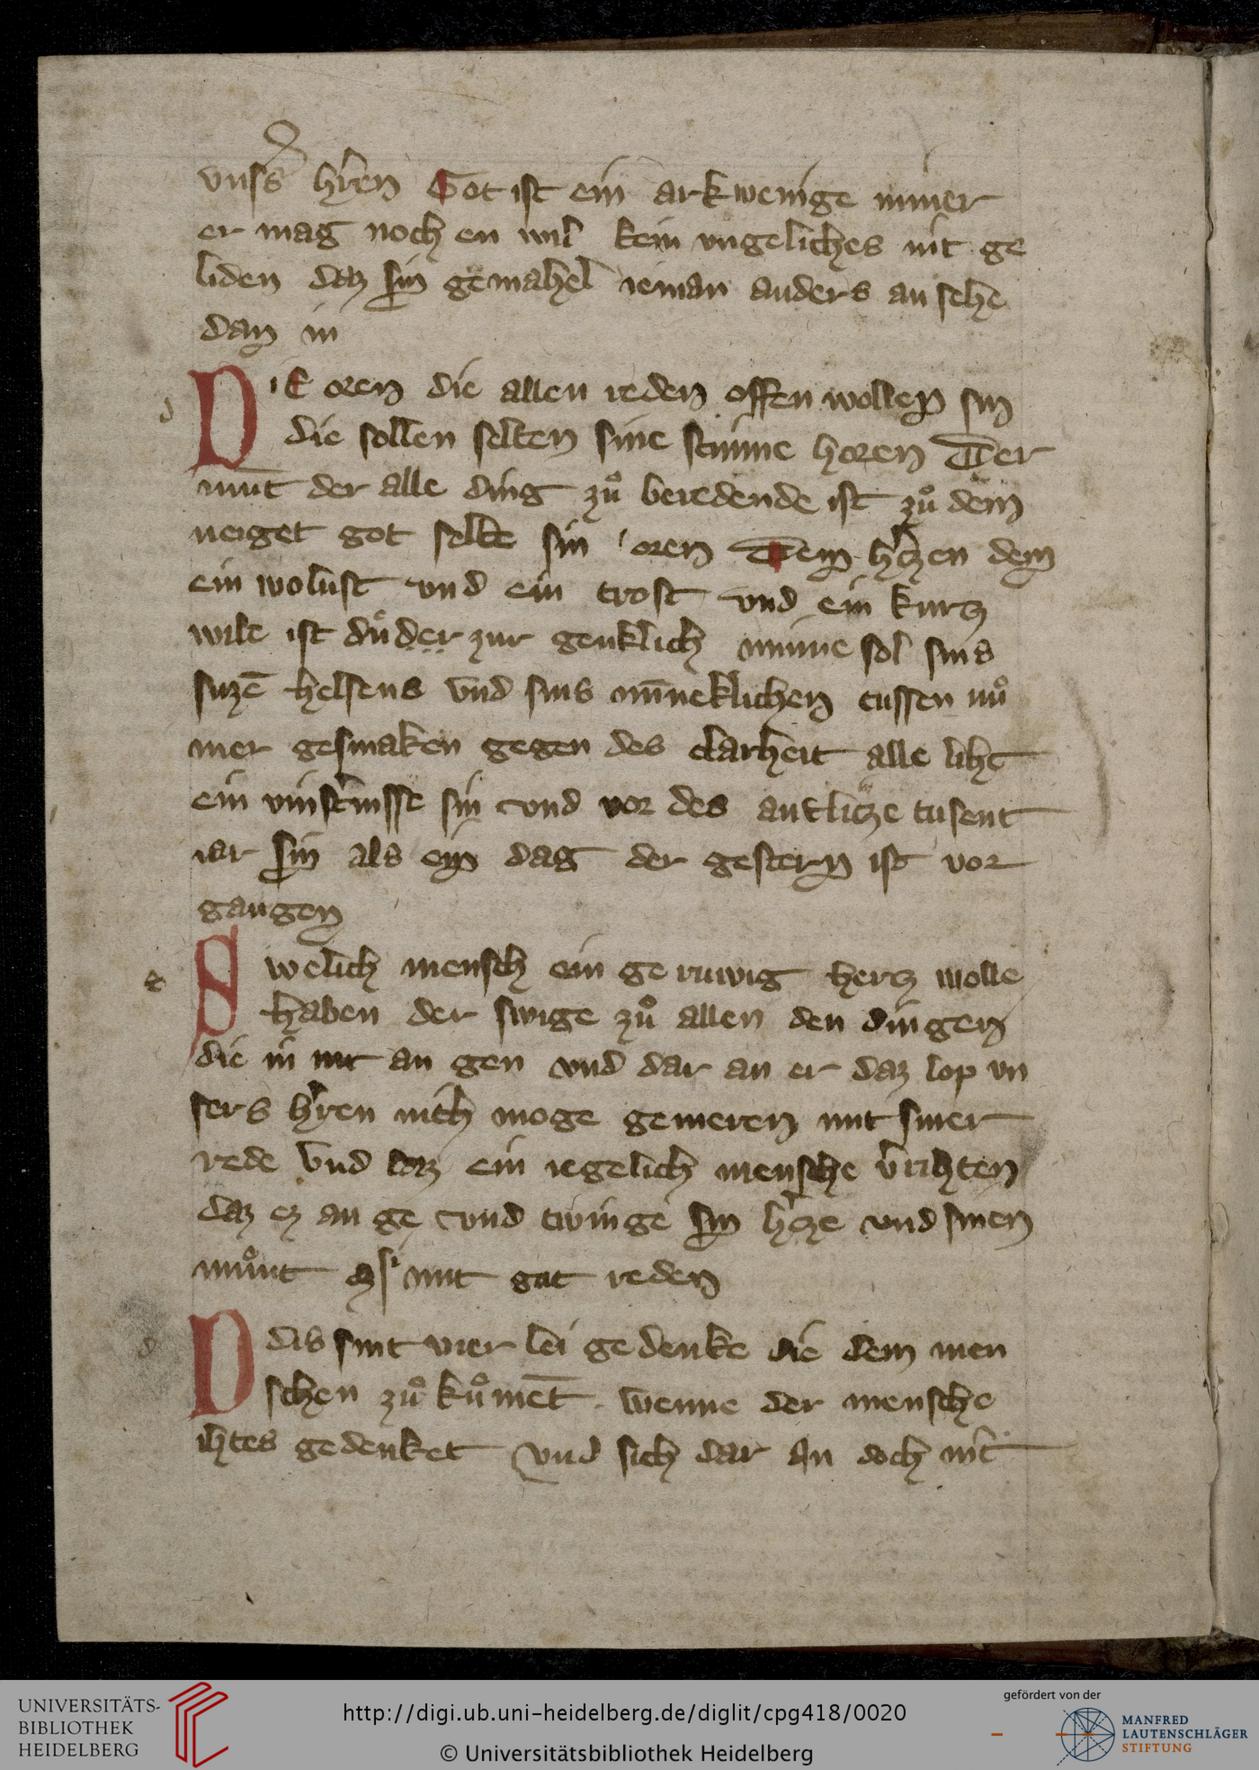 vnſs̉ hr̉en Got iſt ein arkwenige minner
er mag noch en wil kein vngeliches nit ge
liden daz ſin gemahel ieman anders an ſehe
dan in
DiE oren die allen reden offen wollen ſin
die ſollen ſelten ſine ſtimme horen Der
munt der alle ding zuͦ beredende iſt zuͦ dem
neiget got ſelten ſin oren Dem hꝰzen dem
ein woluſt vnd ein troſt vnd ein kurtz
wile iſt der zur genklich minne ſol ſins
ſuzē helſens vnd ſins mīneklichen cuſſen nuͦ
mer geſmaken gegen des clarheit alle liht
ein vinſtꝰniſſe ſin vnd vor des antlitze tuſent
iar ſin als ein dag der geſtern iſt vor
gangen
Swelich menſch ein ge ruwig hertz wolle
haben der ſwige zuͦ allen den dingen
die in nit an gen vnd dar an er daz lop vn
ſers hꝰren nith moge gemeren mit ſiner
rede vnd ein iegelich menſche vꝰrihten
daz ez an ge vnd twinge ſin hꝰtze vnd ſinen
muͦnt mit gat reden
D dis ſint vier lei ge denke die dem men
ſchen zuͦ kuͦmēt wenne der menſche
ihtes gedenket vnd ſich dar an doch nit
d
e
d
UNIVERSITÄTS-
BIBLIOTHEK
HEIDELBERG
http://digi.ub.uni-heidelberg.de/diglit/cpg418/0020
© Universitätsbibliothek Heidelberg
gefördert von der
MANFRED
LAUTENSCHLÄGER
STIFTUNG